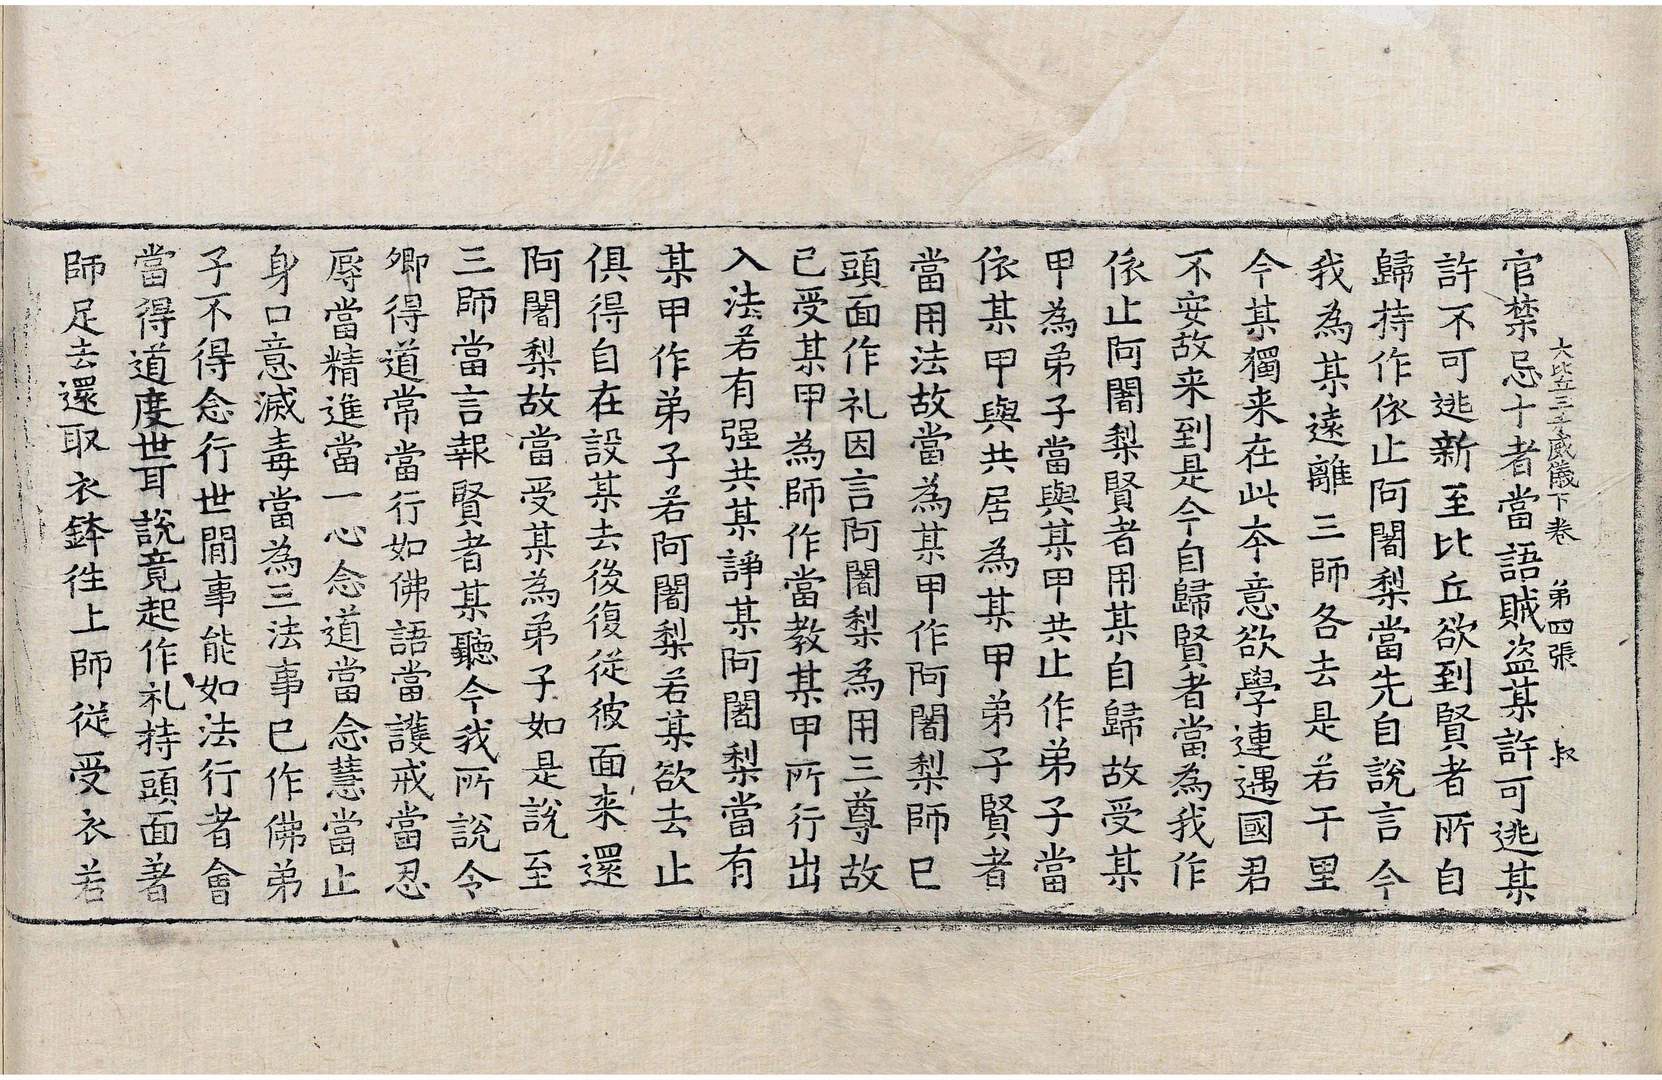 大比丘三千威儀下卷 第四張 叔
官禁忌十者當語賊盜某許可逃某
許不可逃新至比丘欲到賢者所自
歸持作依止阿闍梨當先自說言今
我為某遠離三師各去是若干里
今某獨来在此夲意欲學連遇國君
不安故来到是今自歸賢者當為我作
依止阿闍梨賢者用某自歸故受某
甲為弟子當與某甲共止作弟子當
依某甲與共居為某甲弟子賢者
當用法故當為某甲作阿闍梨師已
頭面作礼因言阿闍梨為用三尊故
已受某甲為師作當教某甲所行出
入法若有强共某諍某阿闍梨當有
某甲作弟子若阿闍梨若某欲去止
俱得自在設某去後復從彼面来還
阿闍梨故當受某為弟子如是說至
三師當言報賢者某聽今我所說令
卿得道常當行如佛語當護戒當忍
辱當精進當一心念道當念慧當止
身口意滅毒當為三法事已作佛弟
子不得念行世間事能如法行者會
當得道度世耳說竟起作礼持頭面著
師足去還取衣鉢徃上師從受衣若